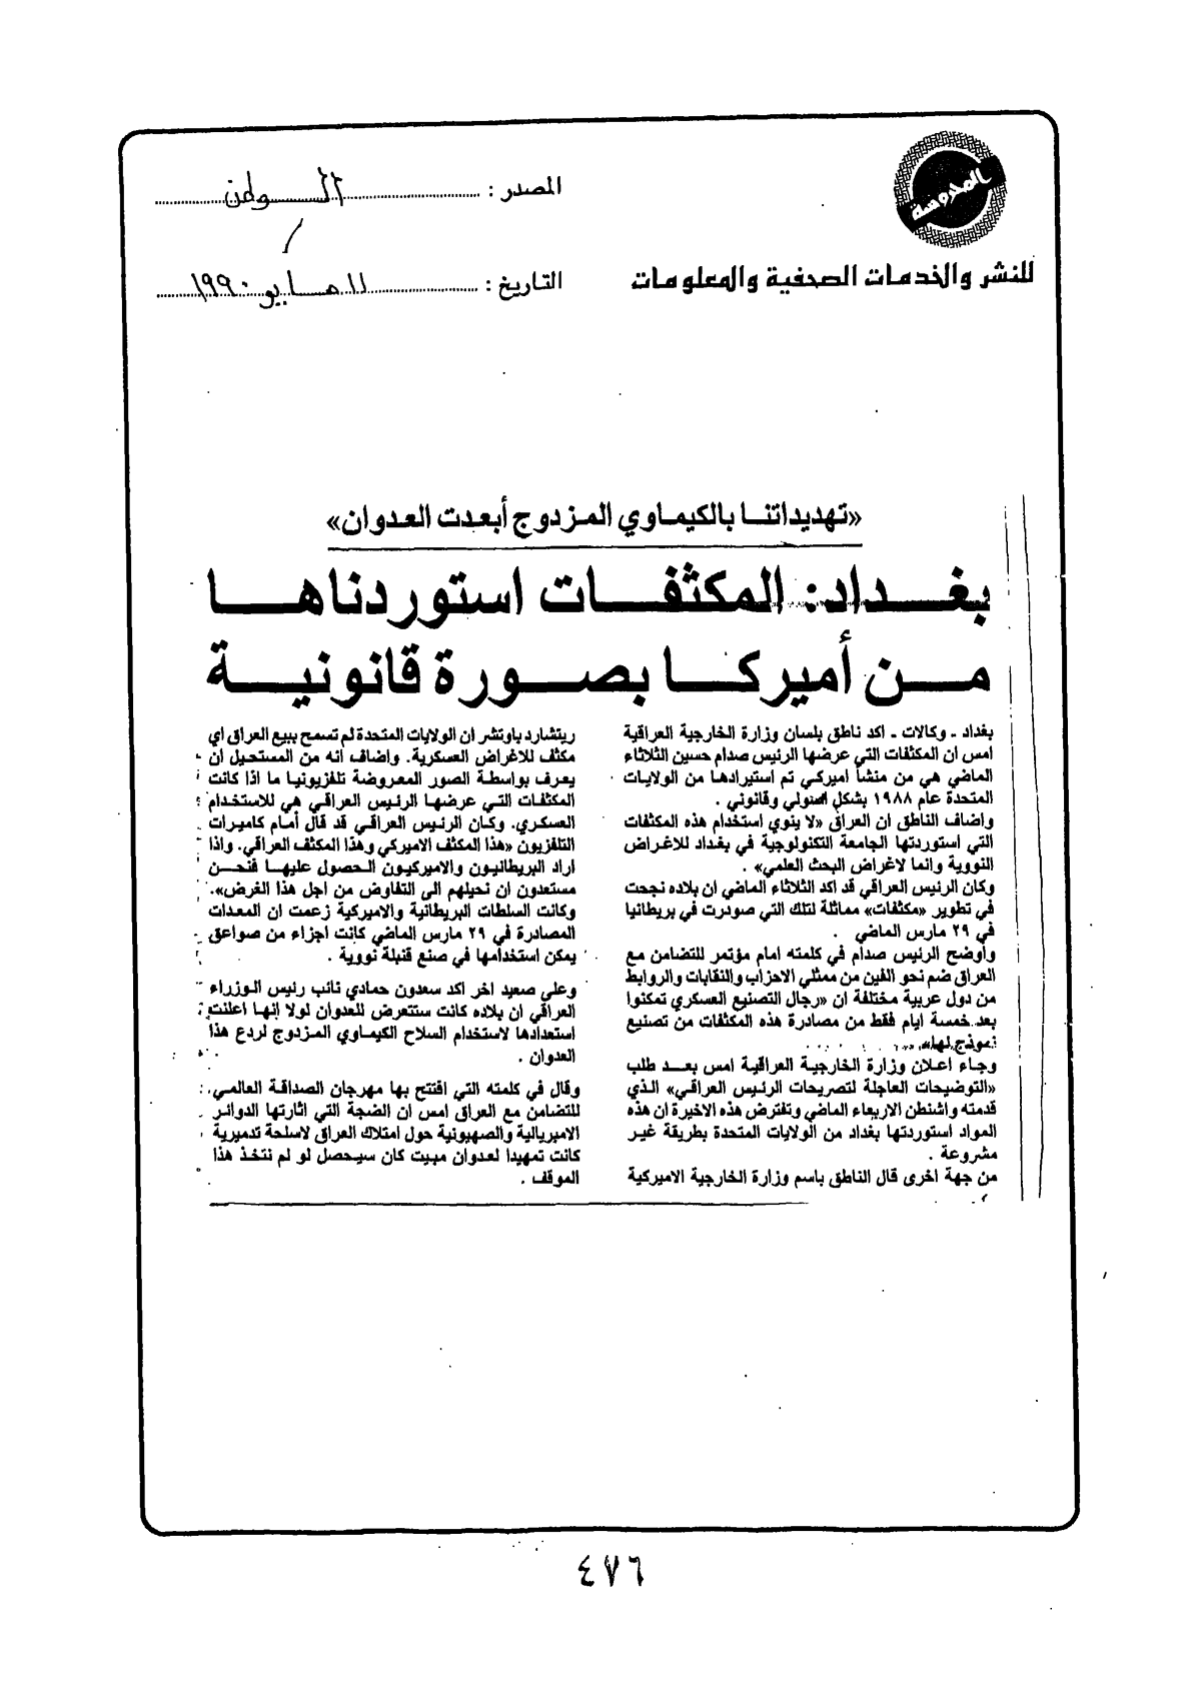 المحروسة
للنشر والخدمات الصحفية والمعلومات
المصدر : الوطن
التاريخ : ١١ مايو ١٩٩٠
«تهديداتنا بالكيماوي المزدوج أبعدت العدوان»
بغداد: المكثفات استوردناها
من أميركا بصورة قانونية
بغداد - وكالات - اكد ناطق بلسان وزارة الخارجية العراقية
امس ان المكثفات التي عرضها الرئيس صدام حسين الثلاثاء
الماضي هي من منشأ اميركي تم استيرادها من الولايات
المتحدة عام ١٩٨٨ بشكل اصولي وقانوني .
واضاف الناطق ان العراق «لا ينوي استخدام هذه المكثفات
التي استوردتها الجامعة التكنولوجية في بغداد للاغراض
النووية وانما لاغراض البحث العلمي» .
وكان الرئيس العراقي قد اكد الثلاثاء الماضي ان بلاده نجحت
في تطوير «مكثفات» مماثلة لتلك التي صودرت في بريطانيا
في ٢٩ مارس الماضي .
وأوضح الرئيس صدام في كلمته امام مؤتمر للتضامن مع
العراق ضم نحو الفين من ممثلي الاحزاب والنقابات والروابط
من دول عربية مختلفة ان «رجال التصنيع العسكري تمكنوا
بعد خمسة ايام فقط من مصادرة هذه المكثفات من تصنيع
نموذج لها»
وجاء اعلان وزارة الخارجية العراقية امس بعد طلب
«التوضيحات العاجلة لتصريحات الرئيس العراقي» الذي
قدمته واشنطن الاربعاء الماضي وتفترض هذه الاخيرة ان هذه
المواد استوردتها بغداد من الولايات المتحدة بطريقة غير
مشروعة .
من جهة اخرى قال الناطق باسم وزارة الخارجية الاميركية
ريتشارد باوتشر ان الولايات المتحدة لم تسمح ببيع العراق اي
مكثف للاغراض العسكرية. واضاف انه من المستحيل ان
يعرف بواسطة الصور المعروضة تلفزيونيا ما اذا كانت
المكثفات التي عرضها الرئيس العراقي هي للاستخدام
العسكري. وكان الرئيس العراقي قد قال أمام كاميرات
التلفزيون «هذا المكثف الاميركي وهذا المكثف العراقي. واذا
اراد البريطانيون والاميركيون الحصول عليها فنحن
مستعدون ان نحيلهم الى التفاوض من اجل هذا الغرض».
وكانت السلطات البريطانية والاميركية زعمت ان المعدات
المصادرة في ٢٩ مارس الماضي كانت اجزاء من صواعق
يمكن استخدامها في صنع قنبلة نووية .
وعلى صعيد اخر اكد سعدون حمادي نائب رئيس الوزراء
العراقي ان بلاده كانت ستتعرض للعدوان لولا إنها اعلنت
استعدادها لاستخدام السلاح الكيماوي المزدوج لردع هذا
العدوان .
وقال في كلمته التي افتتح بها مهرجان الصداقة العالمي
للتضامن مع العراق امس ان الضجة التي اثارتها الدوائر
الامبريالية والصهيونية حول امتلاك العراق لاسلحة تدميرية
كانت تمهيدا لعدوان مبيت كان سيحصل لو لم نتخذ هذا
الموقف .
٤٧٦